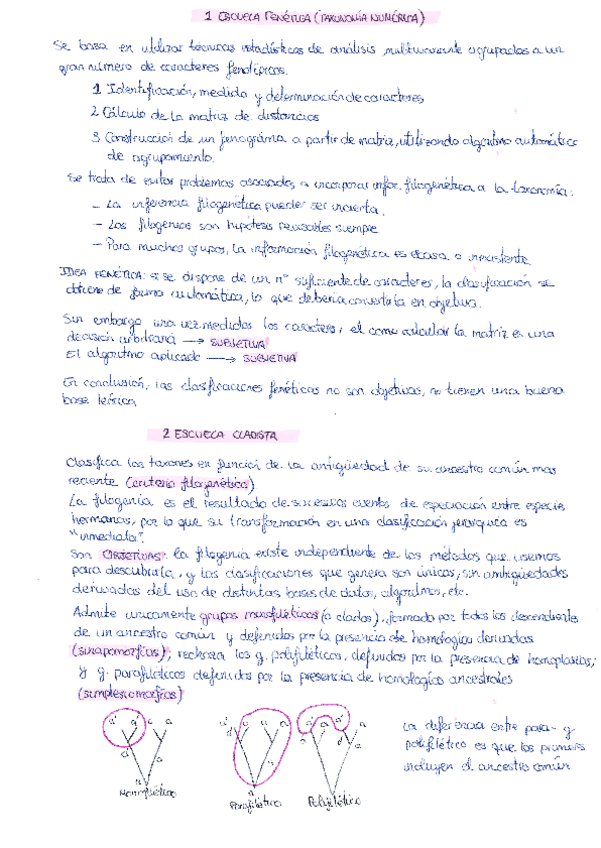 1 ESCUELA FENÉTICA (TAXONOMÍA NUMÉRICA)
Se basa en utilizar técnicas estadísticas de análisis multivariante agrupados a un
gran número de caracteres fenotípicos.
1 Identificación, medida y determinación de caracteres
2 Cálculo de la matriz de distancias
3 Construcción de un fenograma a partir de matriz, utilizando algoritmo automático
de agrupamiento.
Se trata de evitar problemas asociados a incorporar infor. filogenética a la taxonomía:
- La inferencia filogenética puede ser incierta.
- Las filogenias son hipótesis revisables siempre
- Para muchos grupos, la información filogenética es escasa o inexistente
IDEA FENÉTICA: si se dispone de un nº suficiente de caracteres, la clasificación se
obtiene de forma automática, lo que debería convertirla en objetiva.
Sin embargo una vez medidos los caracteres, el como calcular la matriz es una
decisión arbitraria → SUBJETIVA
El algoritmo aplicado → SUBJETIVA
En conclusión, las clasificaciones fenéticas no son objetivas, no tienen una buena
base teórica
2 ESCUELA CLADISTA
Clasifica los taxones en función de la antigüedad de su ancestro común más
reciente (criterio filogenético)
La filogenia es el resultado de sucesivos eventos de especiación entre especies
hermanas, por lo que su transformación en una clasificación jerárquica es
"inmediata".
Son OBJETIVAS: la filogenia existe independiente de los métodos que usemos
para descubrirla, y las clasificaciones que genera son únicas, sin ambigüedades
derivadas del uso de distintas bases de datos, algoritmos, etc.
Admite unicamente grupos monofiléticos (o clados), formado por todos los descendientes
de un ancestro común y definidos por la presencia de homologías derivadas
(sinapomorfías); rechaza los g. polifiléticos, definidos por la presencia de homoplasias;
y g. parafiléticos definidos por la presencia de homologías ancestrales
(simplesiomorfías)
a' a' a a
a'
a
Monofilético
a' a a a
a
Parafilético
a' a a' a
Polifilético
La diferencia entre para- y
polifilético es que los primeros
incluyen el ancestro común